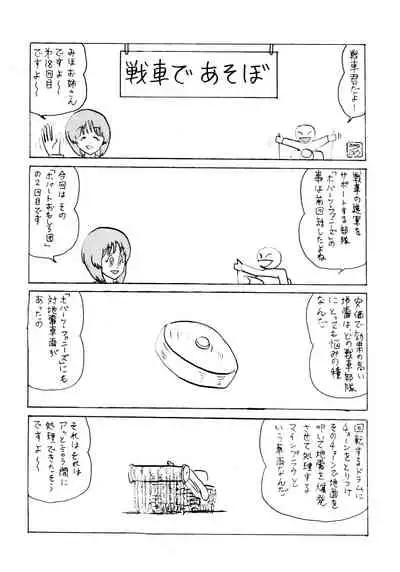 戦車であそぼ
戦車君だよ!
みほお姉さん
ですよ〜
第18回目
ですよ〜〜
戦車の進軍を
サポートする部隊
「ホバーツ・ファニーズ」の
事は前回話したよね
今回はその
「ホバートおもしろ団」
の2回目です
安価で効果の高い
地雷は、どの戦車部隊
にとっても悩みの種
なんだ
「ホバーツ・ファニーズ」にも
対地雷車両が
あったの
回転するドラムに
チェーンをとりつけ
そのチェーンで地面を
叩いて地雷を爆発
させて処理する
マインプラウと
いう車両なんだ
それはそれは
アッと言う間に
処理できたそう
ですよ〜